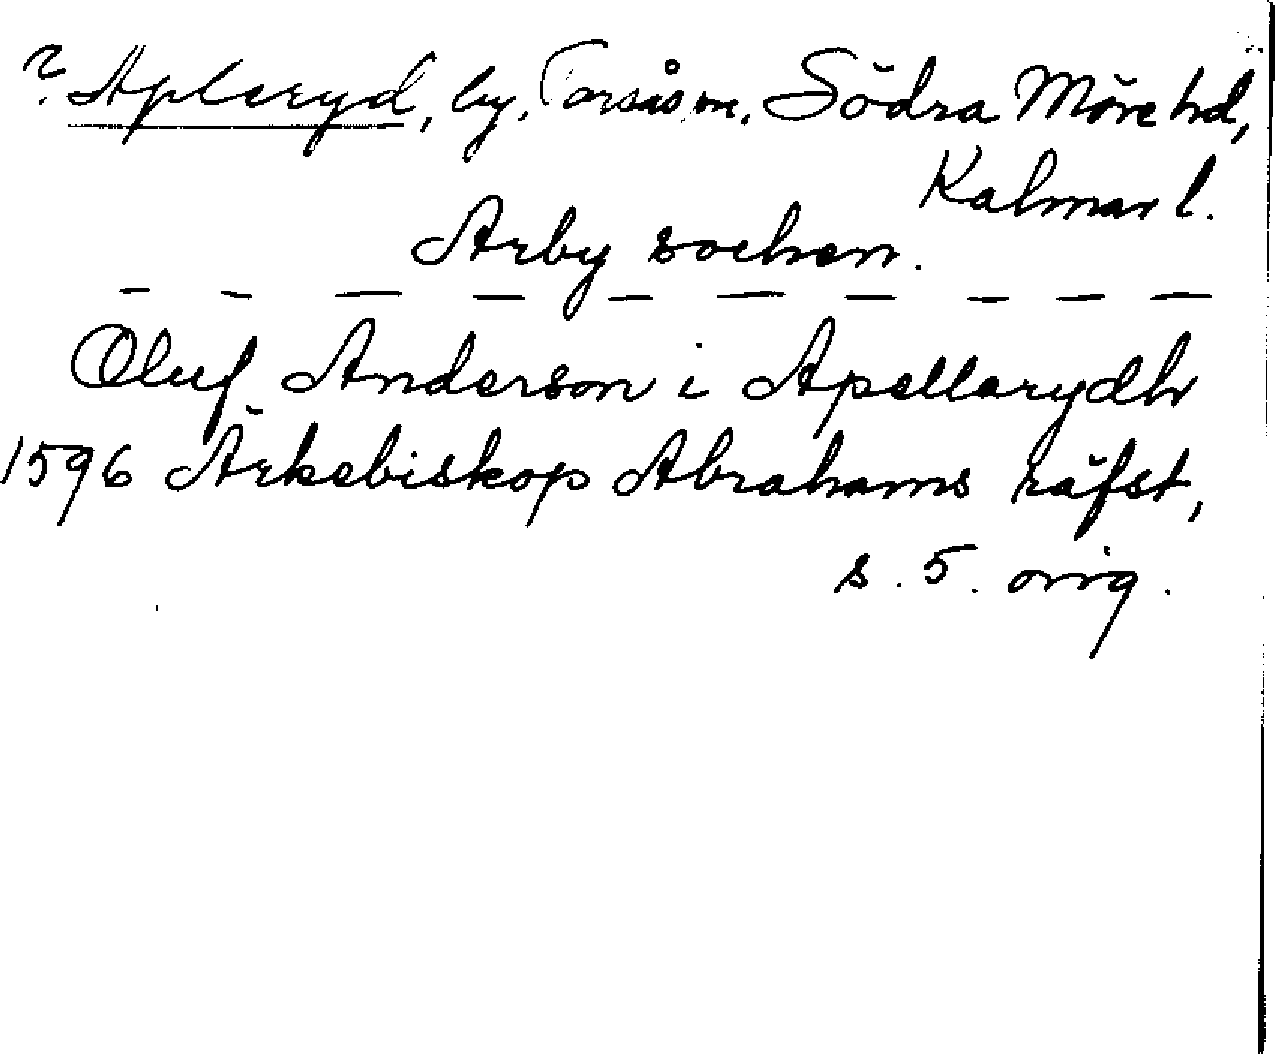 ? Apleryd, by, Torsås sn, Södra Möre hd,
Kalmar l.
Arby sochen.
— — — — — — — — — —
Oluf Anderson i Apellerydh
1596 Ärkebiskop Abrahams räfst,
s. 5. orig.